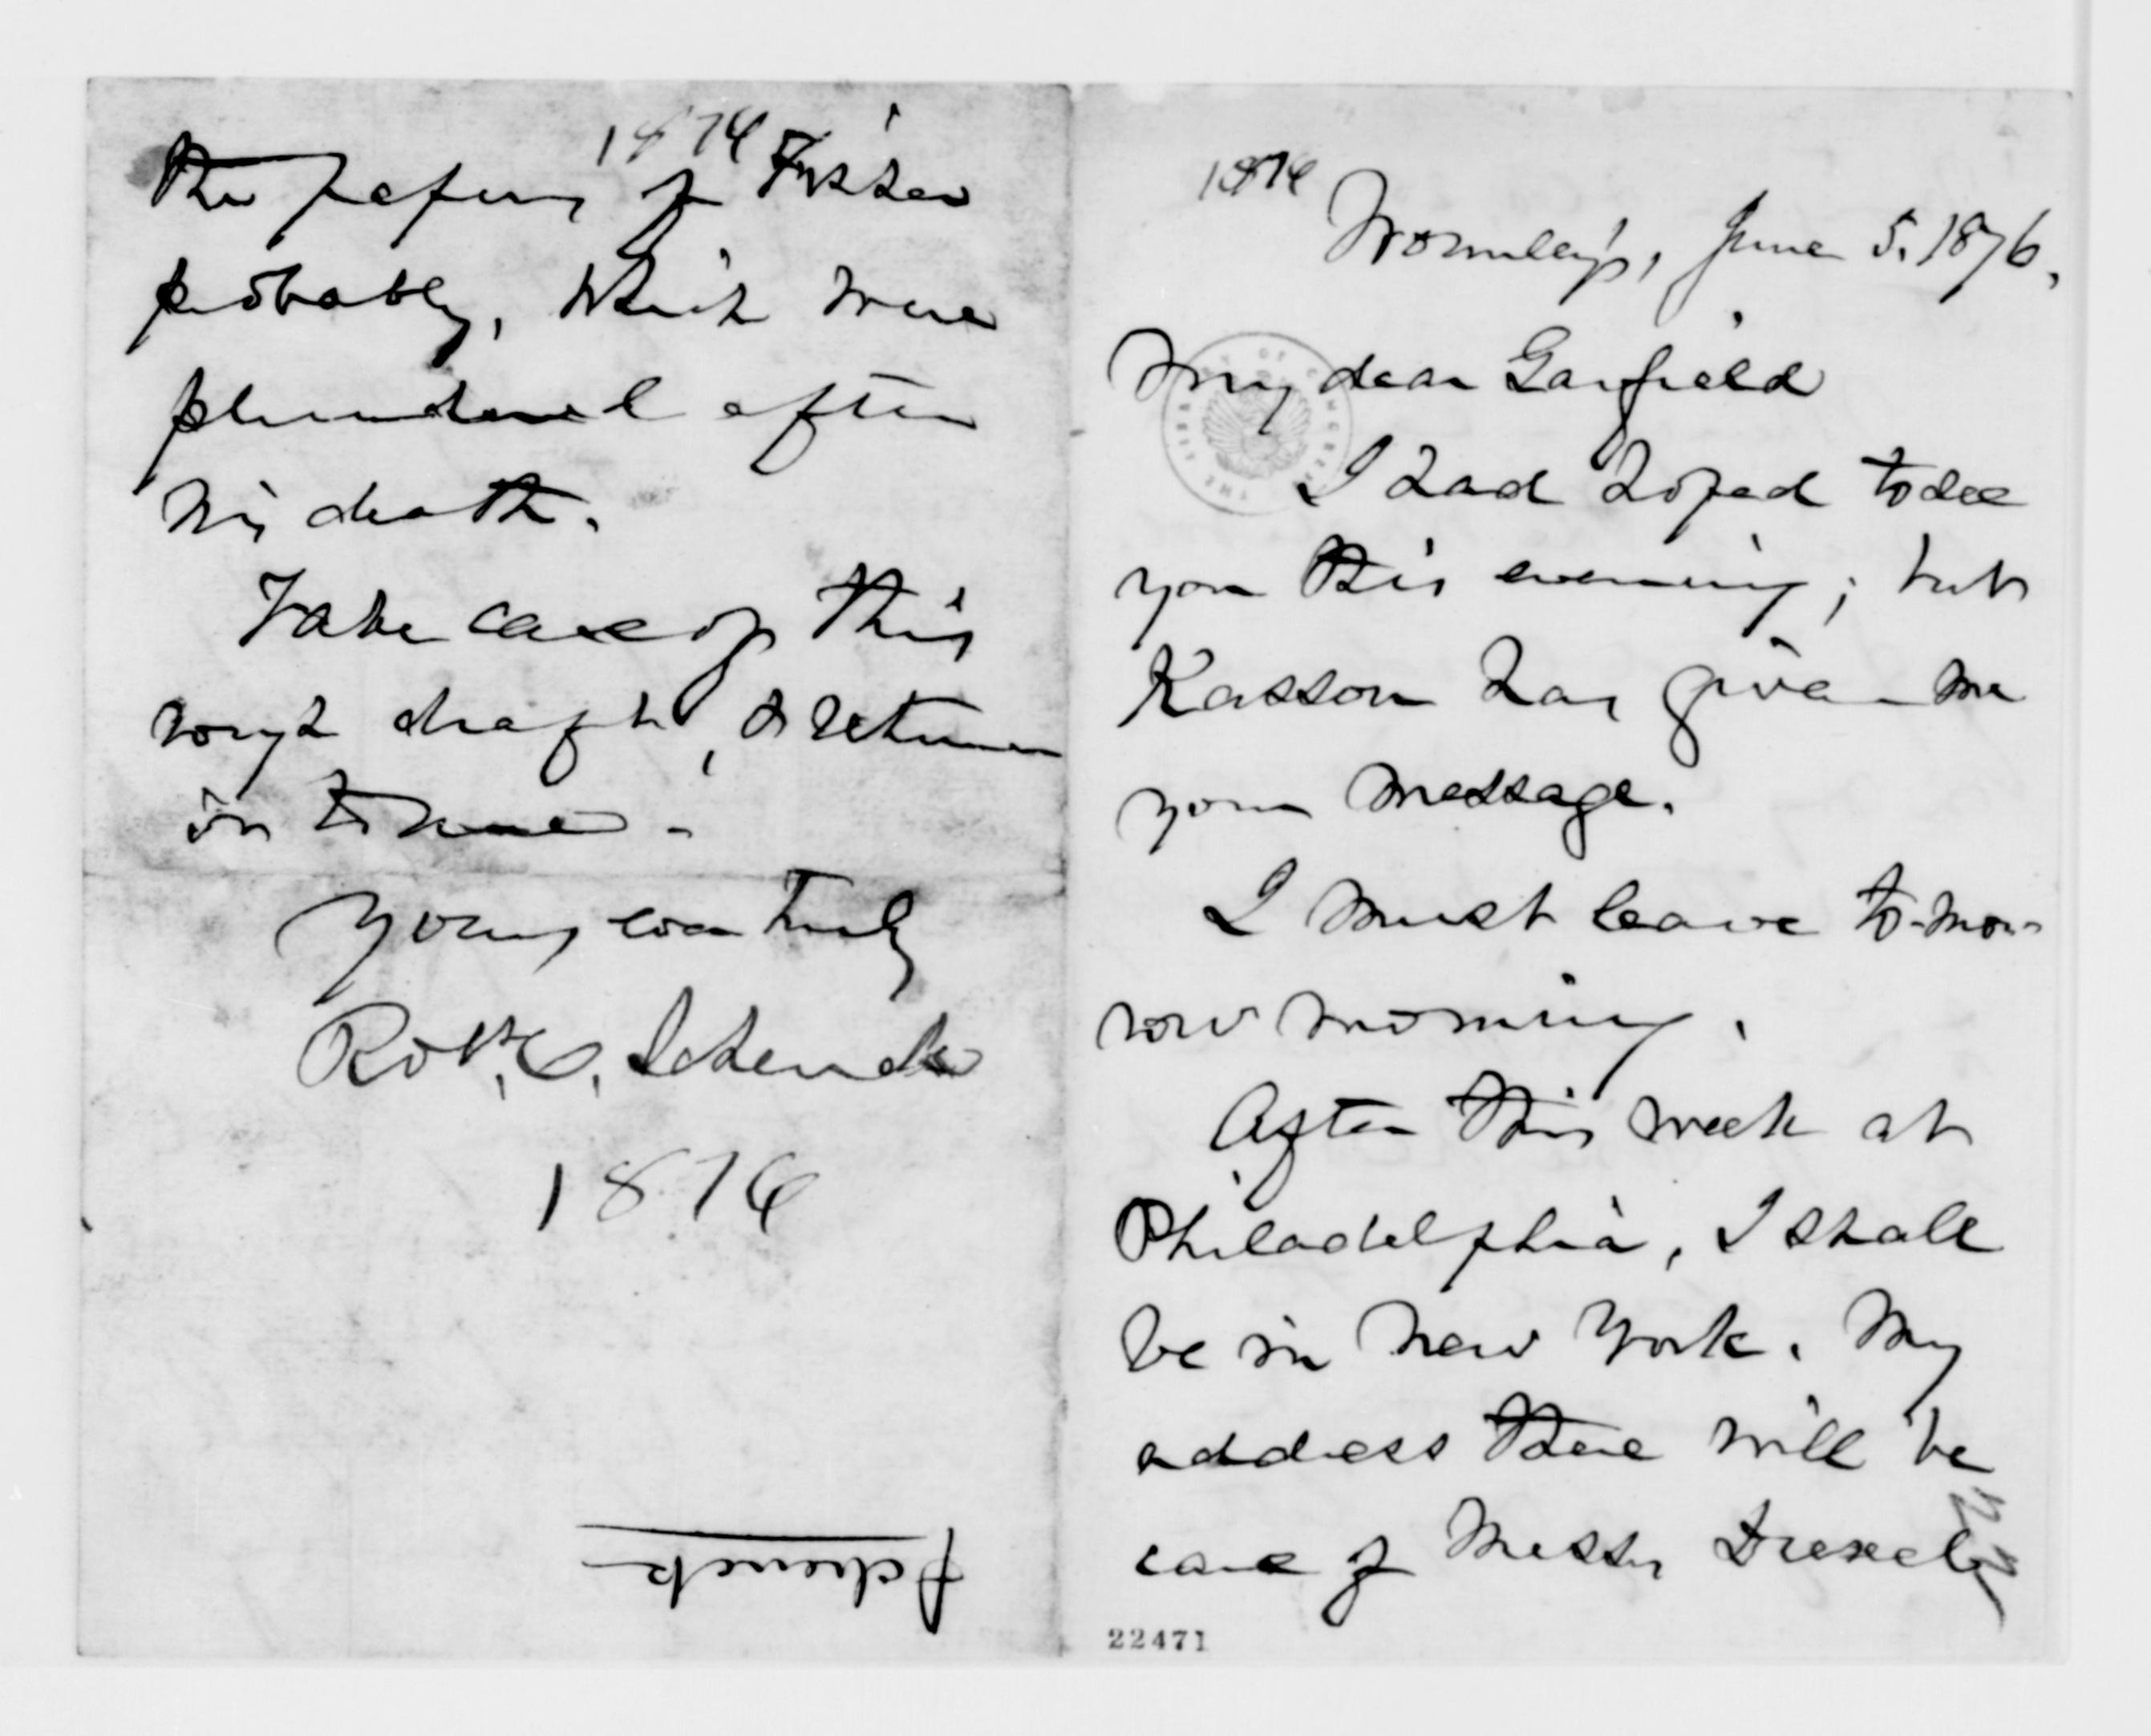 1876
Wormley's, June 5. 1876.
My dear Garfield
I had hoped to see
you this evening; but
Kasson has given me
your message.
I must leave to-mor-
row morning.
After this week at
Philadelphia, I shall
be in New York. My
address there will be
care of Messrs Drexel,
22471
1876
the papers of Fisher
probably, which were
plundered after
his death.
Take care of this
rough draft, & return
it to me.
Yours ever truly
Robt. C. Schenck
1876
Schenck